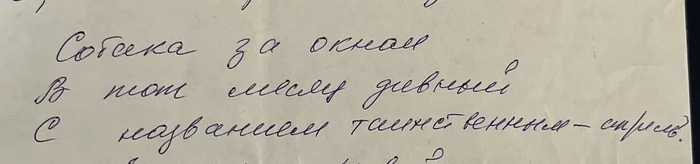 Собака за окном
В тот месяц дивный
С названием таинственным – апрель?